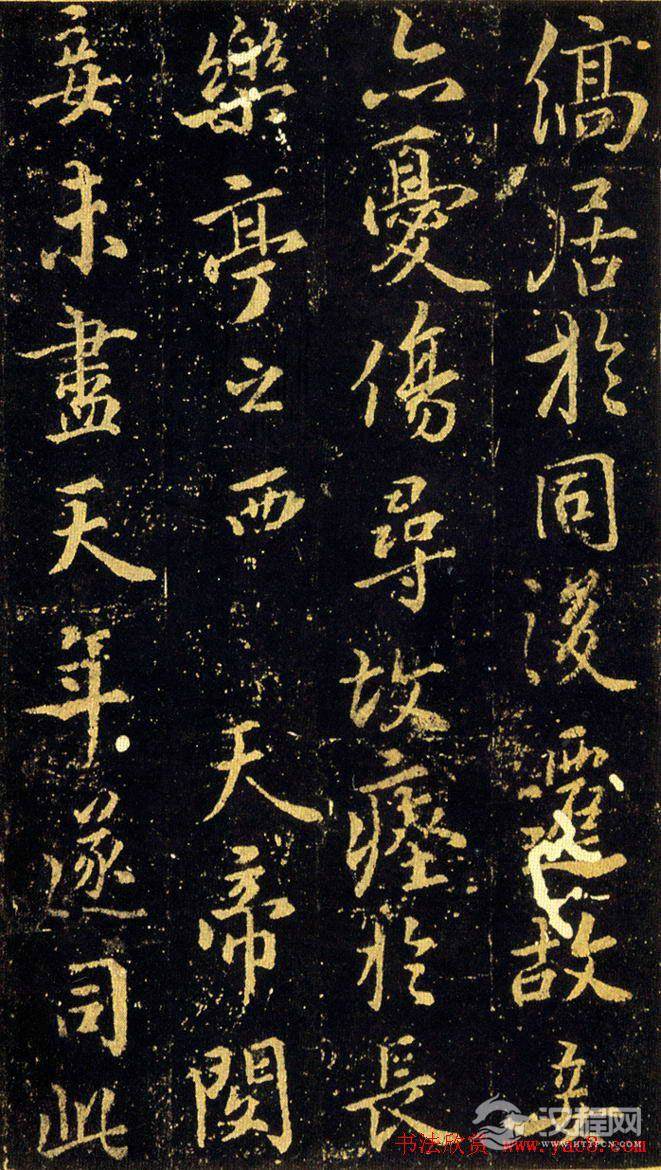 縞居於同後遷故
亦憂傷尋故瘞於長
樂亭之西 天帝閔
妾未盡天年遂司此
汉程网
WWW.HTTPCN.COM
书法欣赏 www.yac8.com